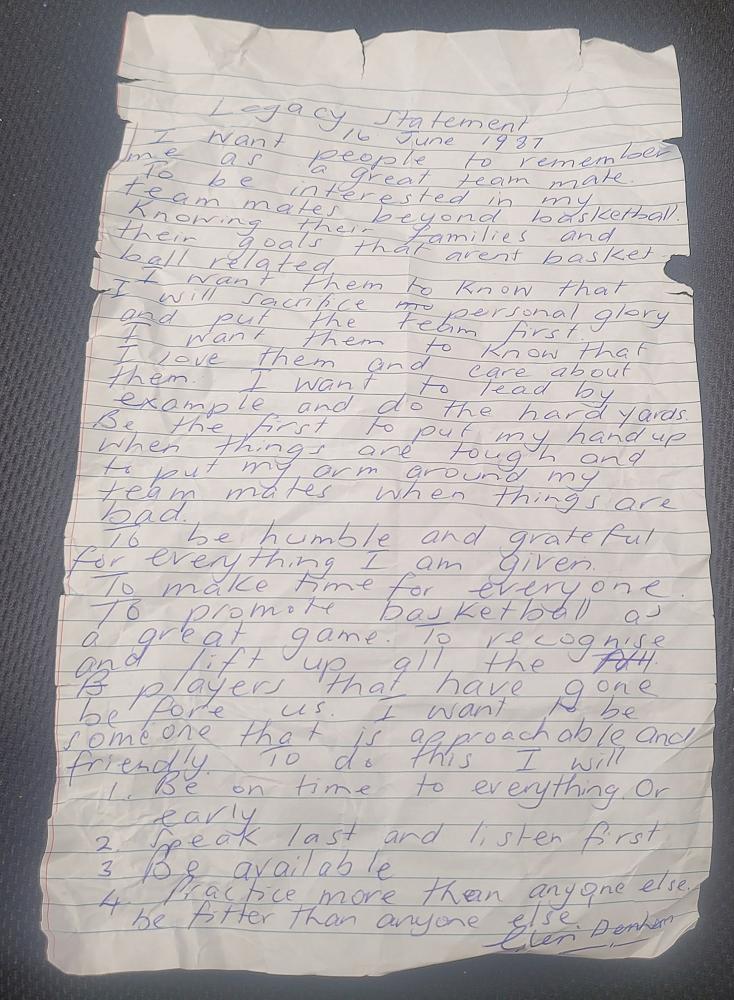 Legacy Statement
16 June 1987
I want people to remember
me as a great team mate.
To be interested in my
team mates beyond basketball.
Knowing their families and
their goals that arent basket
ball related.
I want them to know that
I will sacrifice personal glory
and put the team first.
I want them to know that
I love them and care about
them. I want to lead by
example and do the hard yards.
Be the first to put my hand up
when things are tough and
to put my arm around my
team mates when things are
bad.
To be humble and grateful
for everything I am given.
To make time for everyone.
To promote basketball as
a great game. To recognise
and lift up all the
B players that have gone
before us. I want to be
someone that is approachable and
friendly. To do this I will
1. Be on time to everything. Or
early
2. Speak last and listen first
3 Be available
4. Practice more than anyone else.
be fitter than anyone else